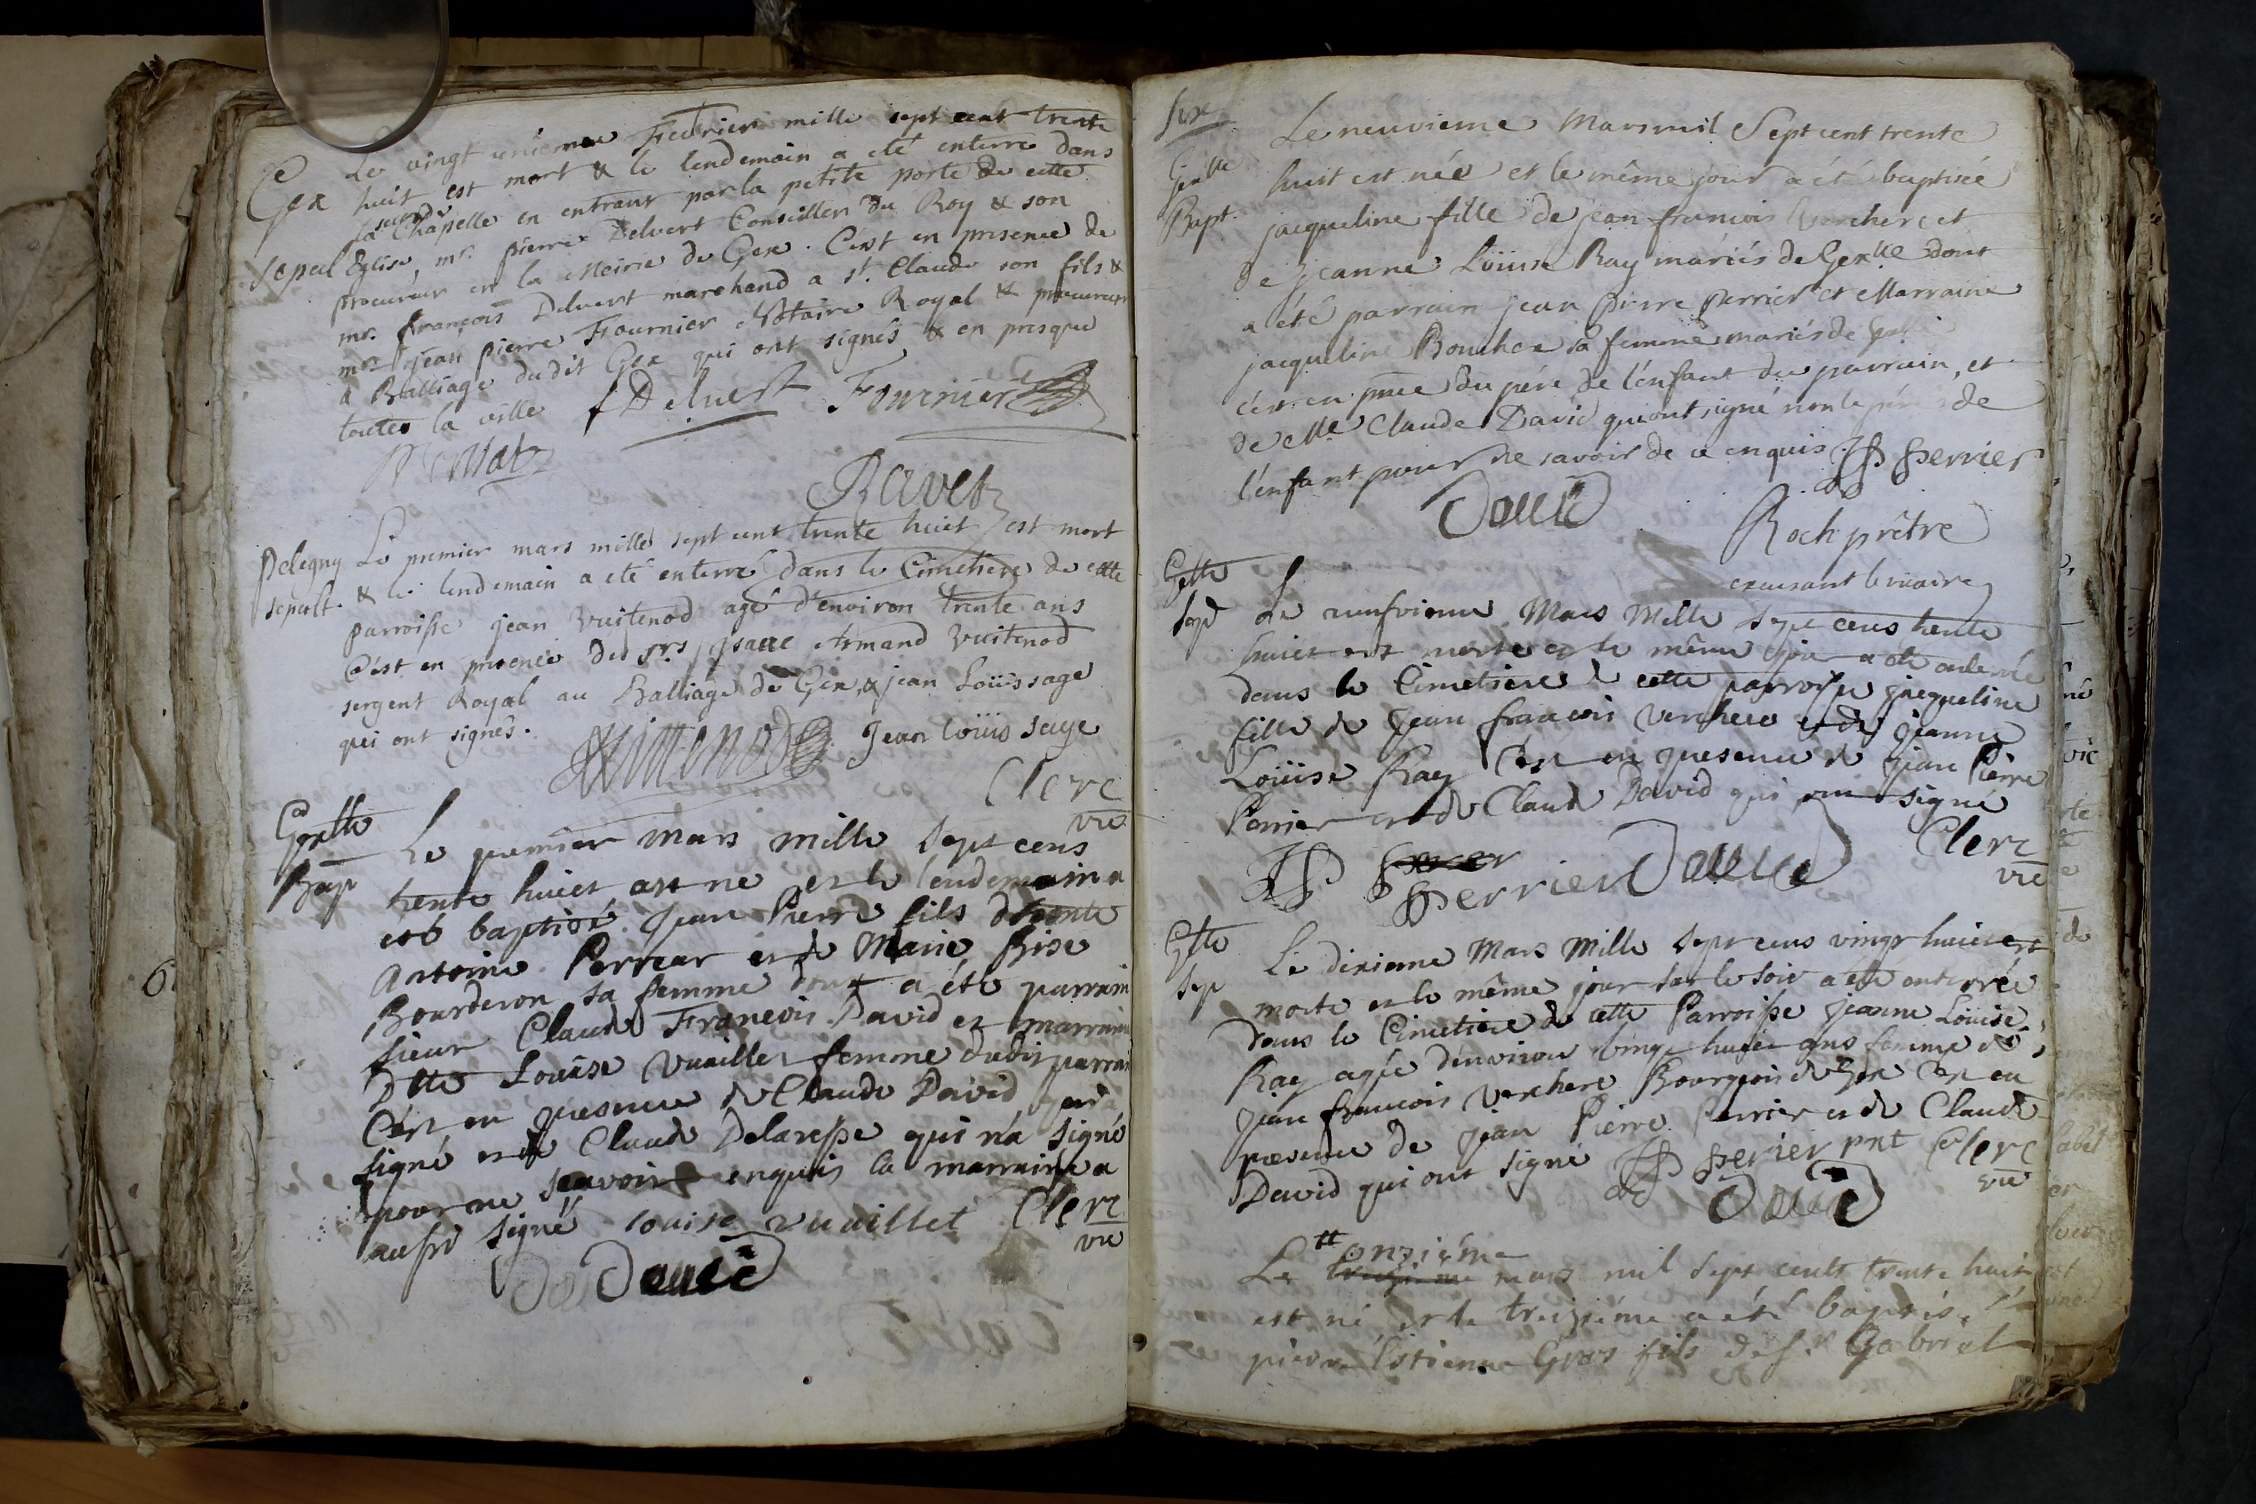 Gex
sepul
Le vingt unième Feuvrier mille sept cent trente
huit est mort & le lendemain a eté enterré dans
la Chapelle en entrant par la petite porte de cette
Eglise, mr. pierre Deluert Conseiller du Roy & son
procureur en la Mairie de Gex. C'est en presence de
mr. françois Deluert marchand a st. Claude son fils &
mr. jean pierre Fournier Notaire Royal & procureur
a Balliage dudit Gex qui ont signés & en presque
toutes la ville f Deluert Fournier
Ravet
Pelegny
sepult.
Le premier mars mille sept cent trente huit est mort
& le lendemain a eté enterré dans le Cimetiere de cette
parroisse jean Vuitenod agé d'environ trente ans
C'est en presence des srs. jsaac Armand Vuitenod
sergent Royal au Balliage de Gex, & jean Loüis sage
qui ont signés.
Vuittenod Jean loüis sage
Clerc
vic
Gexlle
Bap
Le premier mars mille sept cens
trente huict est ne et le lendemain a
esté baptisé Jean Pierre fils
Antoine Perrear et de Marie Rise
Bourderon sa femme dont a été parrain
sieur Claude François David et marraine
Dlle Louïse Vuaillet femme dudit parrain
C'est en presence de Claude David qui a
signé et de Claude Delaresse qui n'a signé
pour ne scavoir enquis la marraine a
aussi signé louise vuaillet Clerc
vic
Dauid
Gex
Gexlle
Bapt.
Le neuvieme Mars mil Sept cent trente
huit est née et le même jour a été baptisée
jacqueline fille de jean francois Verchere et
de jeanne Loüise Ray mariés de Gexlle dont
a été parrain jean pierre perrier et Marraine
jacqueline Boucher sa femme mariés de
c'est en pnce du pére de l'enfant du parrain, et
de Me. Claude David qui ont signé non le pére de
l'enfant pour ne savoir de ce enquis JP perrier
Dauid
Roch prêtre
excusant le vicaire
Gelle
Sep
Le neufvieme Mars Mille sept cens trente
huict est morte et le même jour a eté enterrée
dans le Cimetiere de cette parroisse jacqueline
fille de Jean francois Verchere et de Jeanne
Loüise Ray C'est en presence de Jean Pierre
Perrier et de Claude David qui ont signé
Clerc
vic
JP perrier Dauid
Gelle
Sep
Le dixieme Mars Mille sept cens vingt huict est
morte et le même jour sur le soir a eté enterrée
dans le Cimetiere de cette Parroisse Jeanne Loüise
Ray agée d'environ vingt huict ans femme de
Jean francois Verchere Bourgeois de Gex C'est en
presence de Jean Pierre Perrier et de Claude
David qui ont signé JP perier pnt Clerc
vic
Dauid
Le onziéme mars mil sept cent trente huit
est né et le treiziéme a été baptisé
pierre Estienne Gros fils de sr. Gabriel